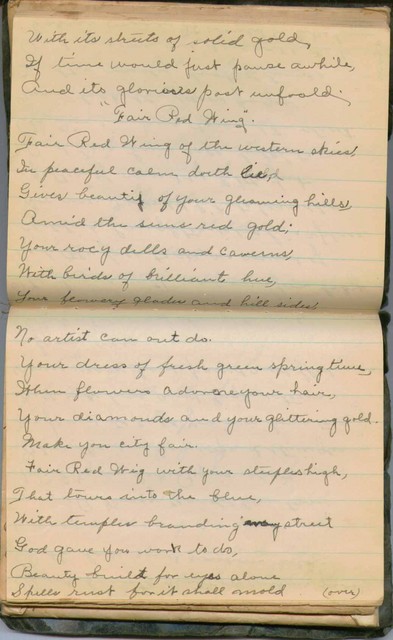 With its streets of solid gold,
If time would just pause awhile,
And its glorious past unfoold;
"Fair Red Wing".
Fair Red Wing of the western skies,
In peaceful calm doeth lie,
Gives beauty of your gleaming hills,
Amid the suns red gold;
Your rocy dells and caverns,
With birds of brilliant hue,
Your flowery glades and hill sides,
No artist can out do.
Your dress of fresh green springtime,
When flowers advore your hair,
Your diamonds and your glittering gold.
Make you city fair.
Fair Red Wig with your steeples high,
That tours into the blue,
With temples branding street
God gave you work to do,
Beauty built for eyes alone
Spells rust for it shall mold (over)